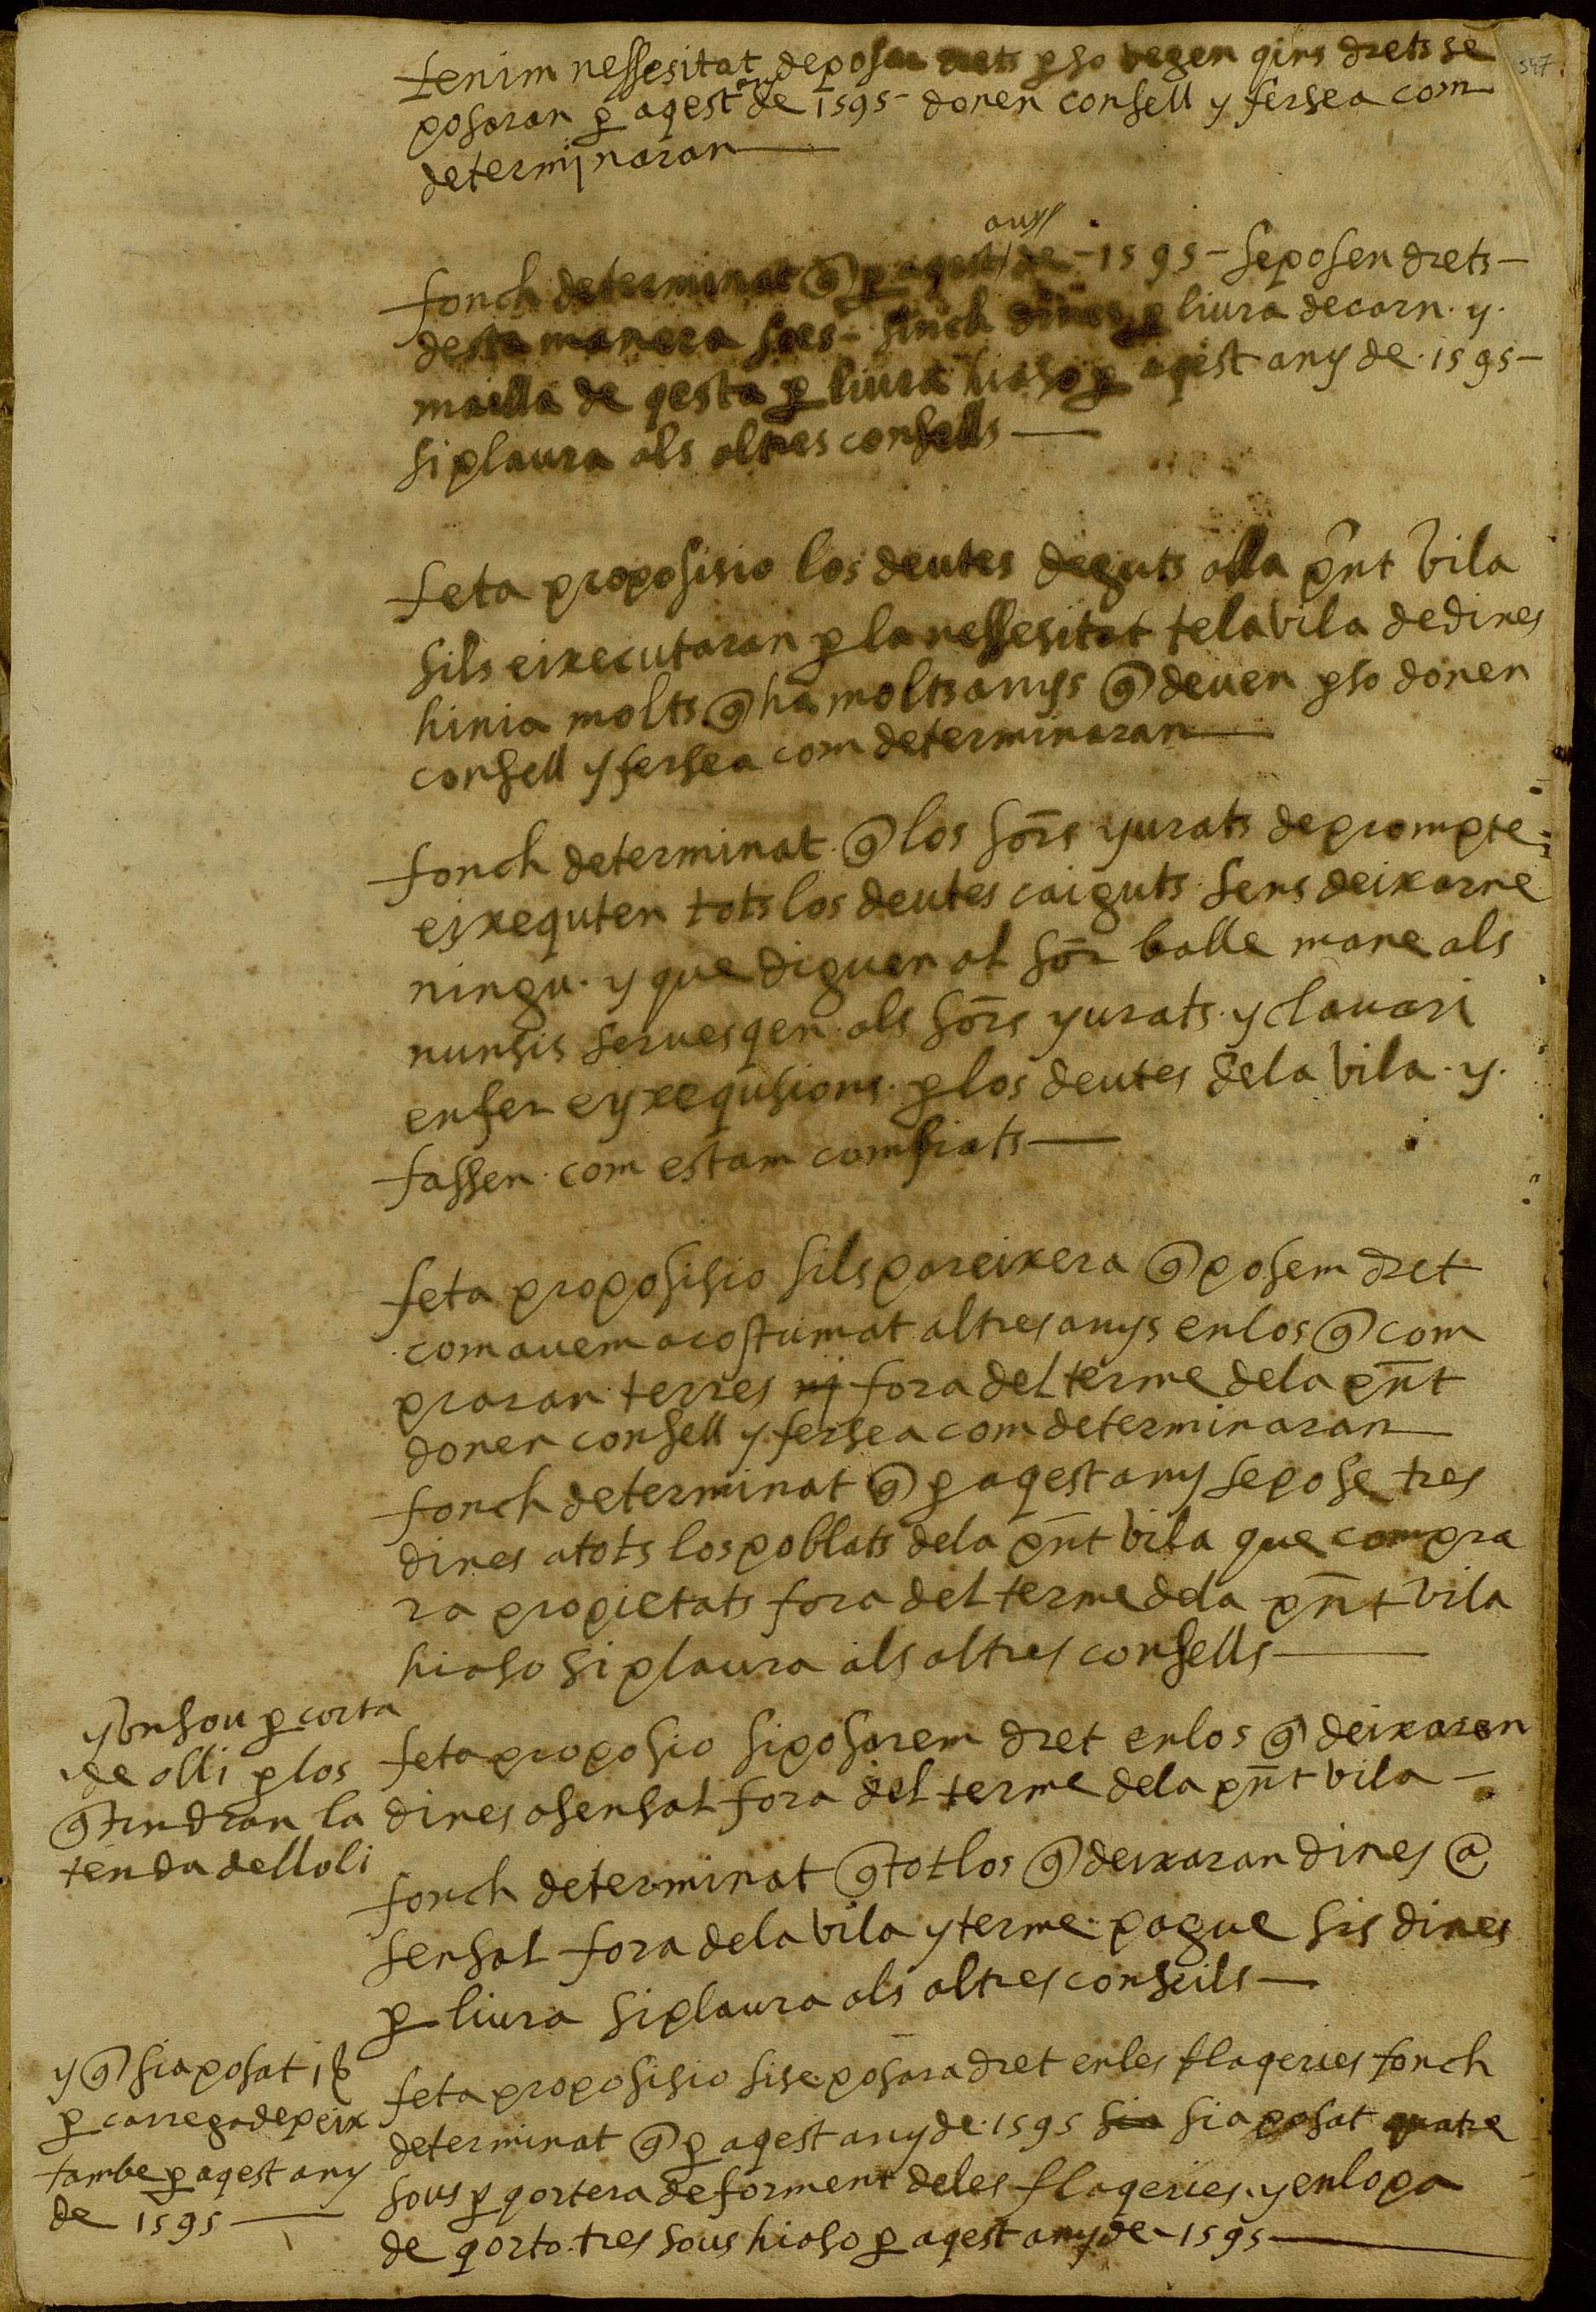 347
tenim nessesitat de posar drets p̱ so vegen qins drets se
posaran p̱ aqest any de 1595 - donen consell y fersea com
determjnaran
fonch determinat q̃ p̱ aqest anys de - 1595 - se posen drets -
desta manera soes - sinch dines p̱ liura de carn · y ·
mailla de qesta p̱ liura hiaso p̱ aqest any de · 1595 -
si plaura als altres consells
feta proposisio los deutes deguts alla pñt vila
sils eixecutaran p̱ la nessesitat te la vila de dines
hi nia molts q̃ ha molts anys q̃ deuen p̱so donen
consell y fersea com determinaran
fonch determinat q̃ los sõrs yurats de prompte
eixequten tots los deutes caiguts sens deixarne
ningu · y que diguen al sõr balle mane als
nunsis seruesqen als sõrs yurats · y clauari
en fer eyxequsions · p̱ los deutes de la vila · y ·
fassen com estam comfiats
feta proposisio sils pareixera q̃ posem dret
com auem acostumat altres anys en los q̃ com
praran terres nj fora del terme de la pñt
donen consell y fersea com determinaran
fonch determinat q̃ p̱ aqest any se pose tres
dines a tots los poblats de la pñt vila que compra
ra propietats fora del terme de la pñt vila
hiaso si plaura als altres consells
y un sou p̱ corta
de olli p̱ los
q̃ tindran la
tenda dell oli
feta proposio si posarem dret en los q̃ deixaran
dines a sensal fora del terme de la pñt vila -
fonch determinat q̃ tot los q̃ deixaran dines a
sensal fora de la vila y terme · pague sis dines
p̱ liura si plaura als altres conseils
y q̃ sia posat 1 ß
p̱ carrega de peix
tambe p̱ aqest any
de 1595
feta proposisio si se posara dret en les flaqeries fonch
determinat q̃ p̱ aqest any de · 1595 sia sia posat quatre
sous p̱ qortera de forment de les flaqeries · y en lo pa
de qorto · tres sous hiaso p̱ aqest any de - 1595